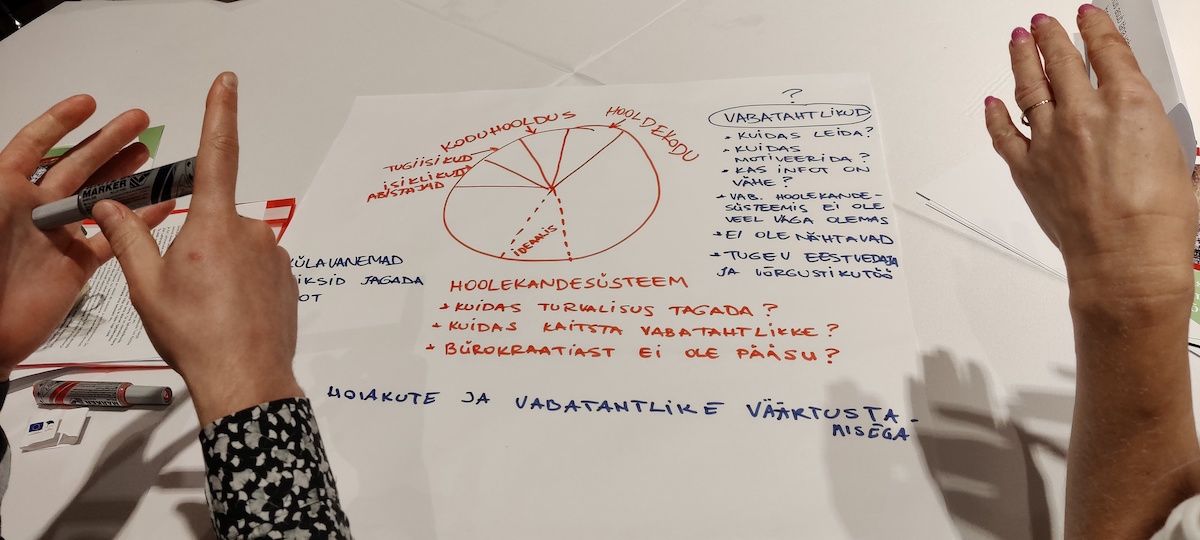 ?
VABATAHTLIKUD
KUIDAS LEIDA?
KUIDAS
MOTIVEERIDA?
KAS INFOT ON
VÄHE?
VAB. HOOLEKANDE-
SÜSTEEMIS EI OLE
VEEL VÄGA OLEMAS
EI OLE NÄHTAVAD
TUGEV EESTVEDAJA
JA VÕRGUSTIKUTÖÖ
KODUHOOLDUS
HOOLDEKODU
TUGIISIKUD
ISIKLIKUD
ABISTAJAD
IDEAALIS
HOOLEKANDESÜSTEEM
KUIDAS TURVALISUS TAGADA?
KUIDAS KAITSTA VABATAHTLIKKE?
BÜROKRAATIAST EI OLE PÄÄSU?
KÜLAVANEMAD
IKSID JAGADA
OT
HOIAKUTE JA VABATAHTLIKE VÄÄRTUSTA-
MISEGA
MARKER
MARKER